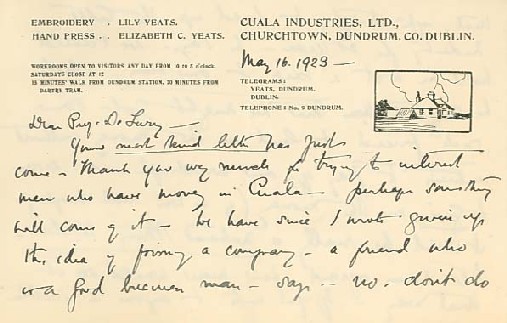 EMBROIDERY . LILY YEATS.
HAND PRESS . . ELIZABETH C. YEATS.
CUALA INDUSTRIES, LTD.,
CHURCHTOWN, DUNDRUM, CO. DUBLIN.
WORKROOMS OPEN TO VISITORS ANY DAY FROM 10 to 5 o'clock
SATURDAYS CLOSE AT 12
15 MINUTES' WALK FROM DUNDRUM STATION, 20 MINUTES FROM
TRAM.
May 16. 1923 —
TELEGRAMS:
YEATS, DUNDRUM,
DUBLIN.
TELEPHONE: No. 9 DUNDRUM.
Dear
Your most kind letter has just
come – Thank you very much for trying to interest
men who have money in Cuala – perhaps something
will come of it – We have since I wrote given up
the idea of forming a company – a friend who
is a good business man – says – no – don't do